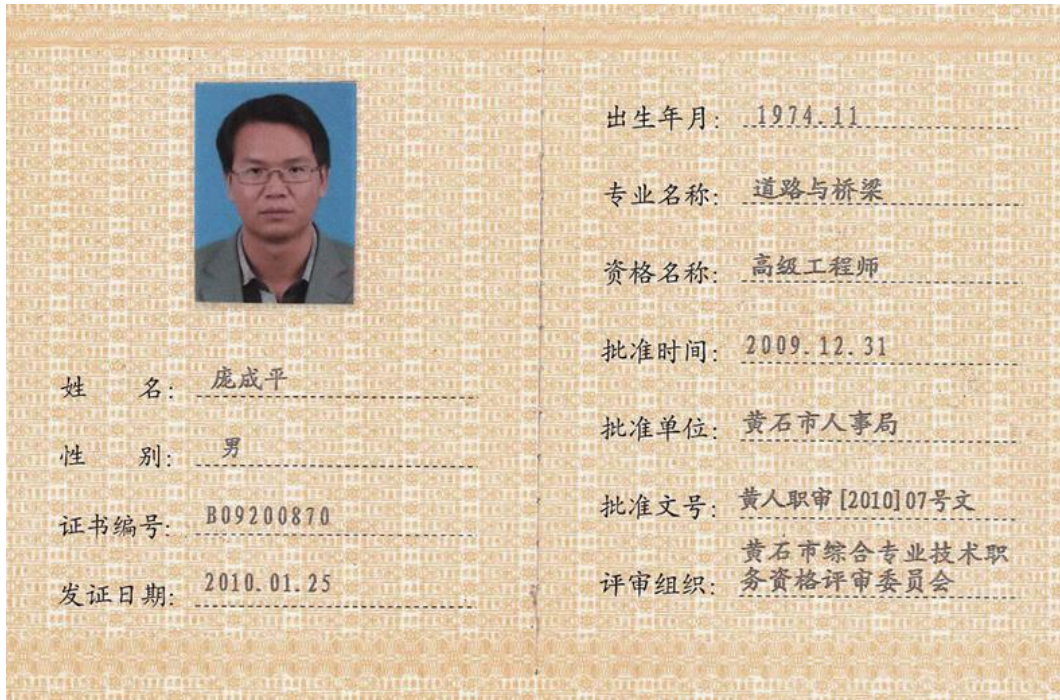 姓 名: 庞成平
性 别: 男
证书编号: B09200870
发证日期: 2010.01.25
出生年月: 1974.11
专业名称: 道路与桥梁
资格名称: 高级工程师
批准时间: 2009.12.31
批准单位: 黄石市人事局
批准文号: 黄人职审[2010]07号文
评审组织: 黄石市综合专业技术职
务资格评审委员会